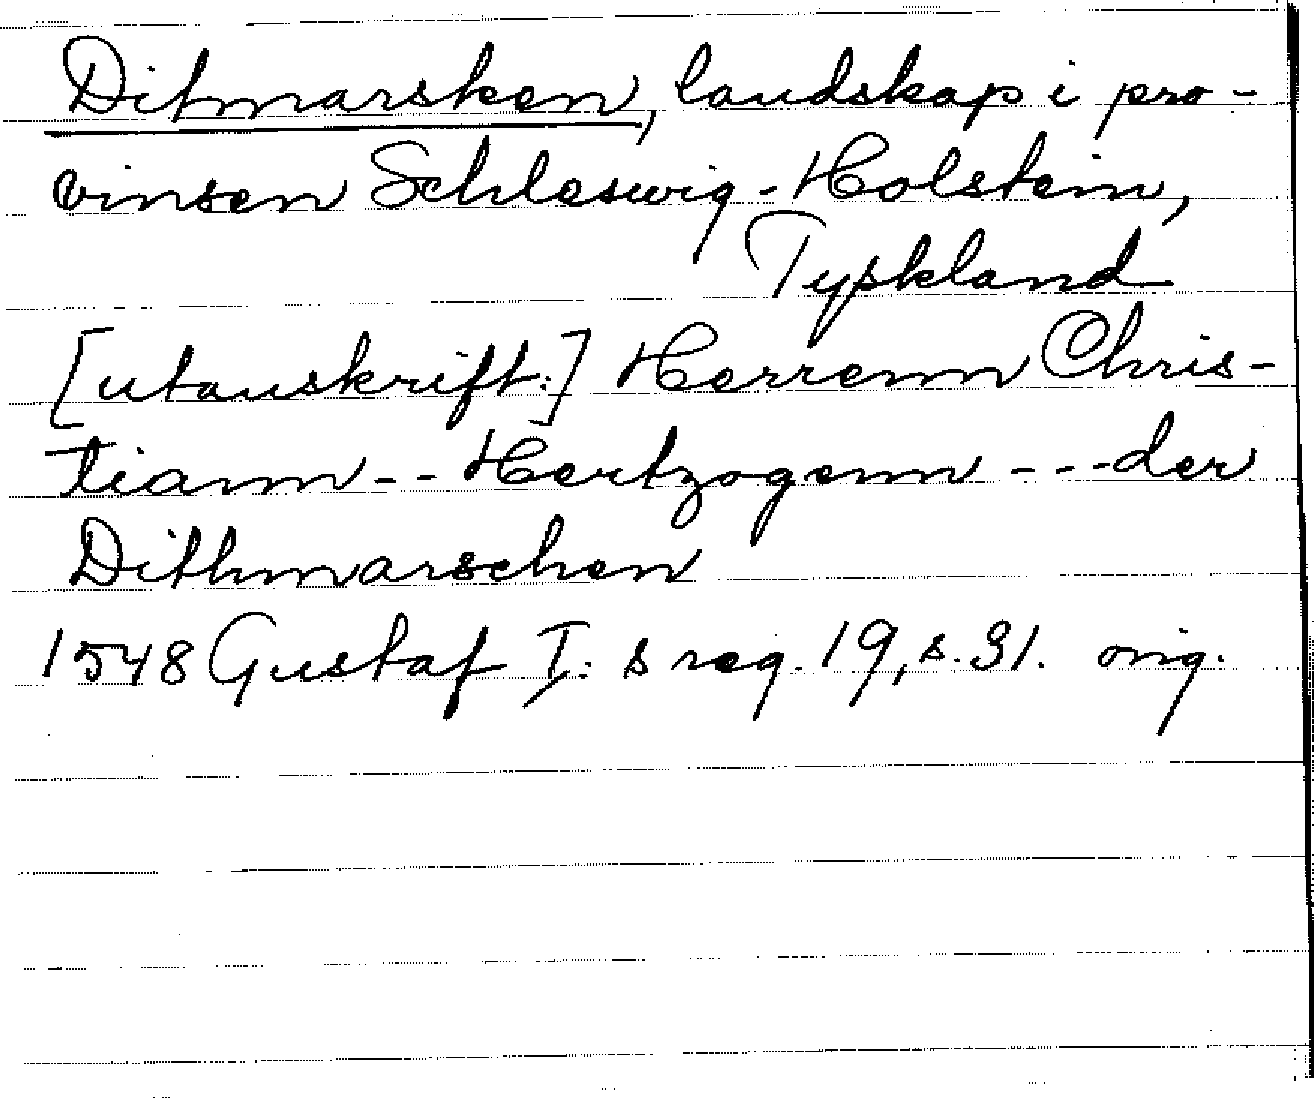 Ditmarsken, landskap i pro-
vinsen Schleswig-Holstein,
Tyskland
[utanskrift:] Herrenn Chris-
tiann -- Hertzogenn --- der
Dithmarschen
1548 Gustaf I:s reg. 19, s. 31. orig.